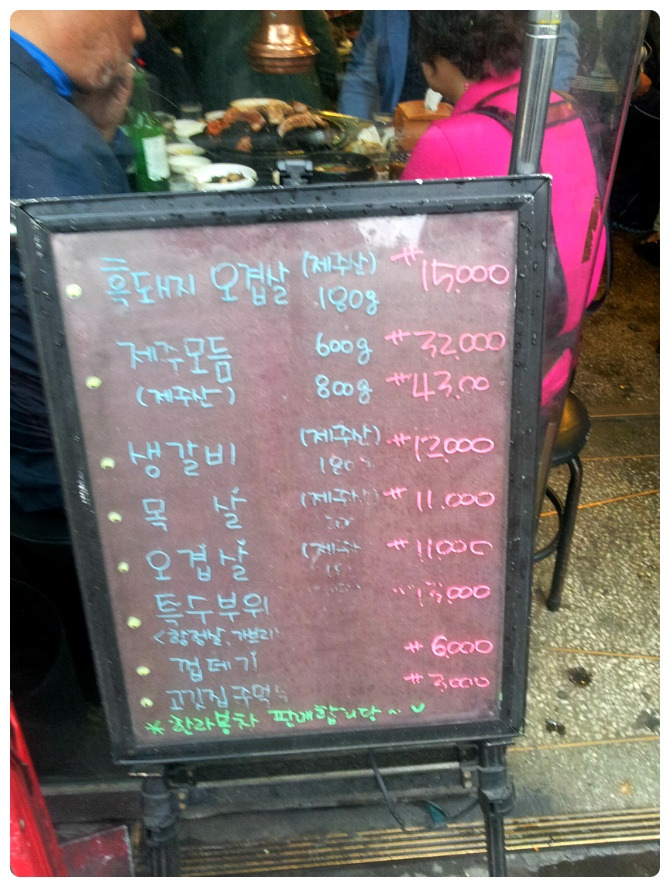 흑돼지 오겹살 (제주산) ₩15,000
180g
제주모듬 600g ₩32,000
(제주산) 800g ₩43,00
생갈비 (제주산) ₩12,000
180
목 살 (제주산) ₩11,000
오겹살 (제주 ₩11,000
특수부위 13,000
<항정살, 가브리
껍데기 ₩6,000
고깃집주먹 ₩3,000
* 한라봉차 판매합니당 ~ ♥